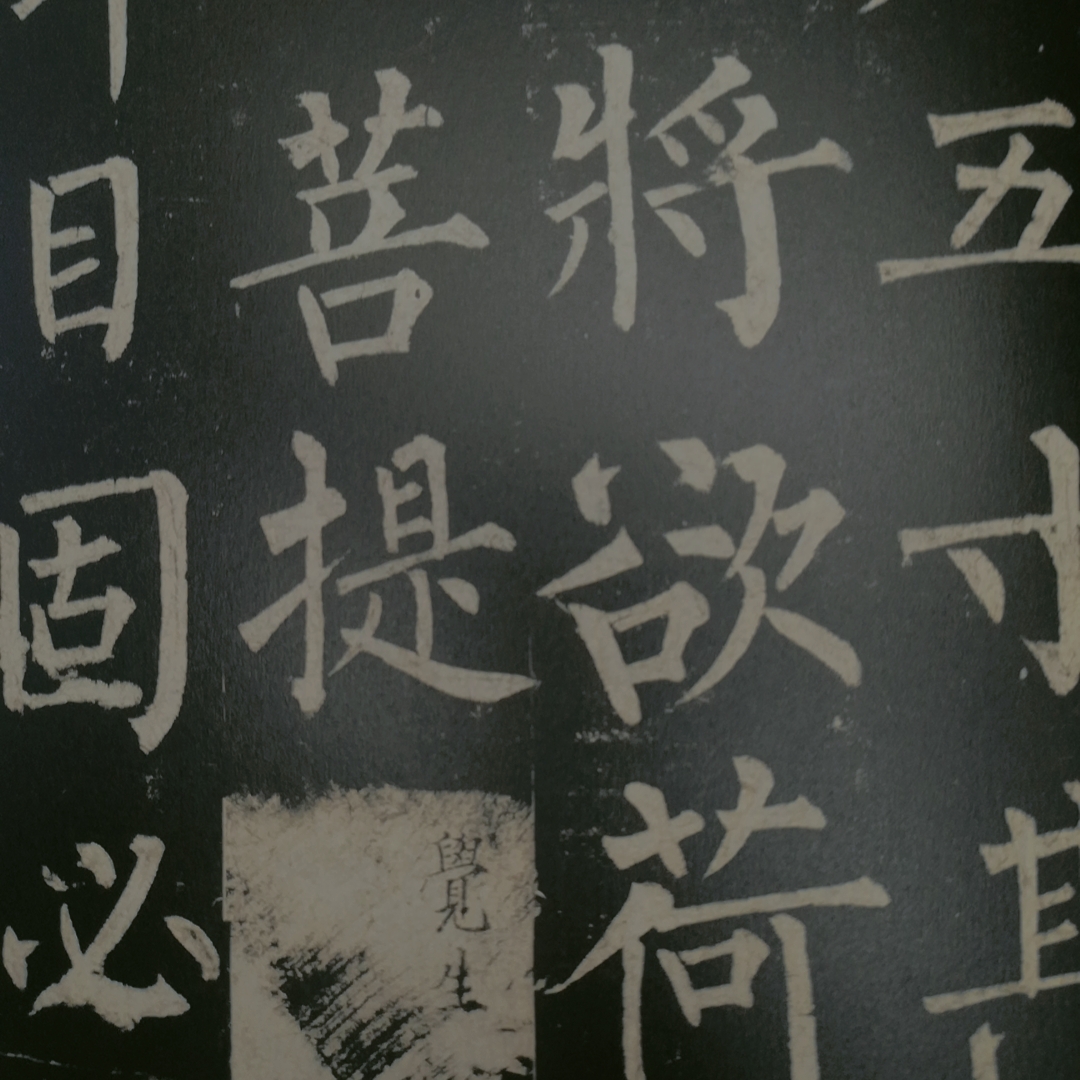 五寸其
將欲荷
菩提
覺生
目固必